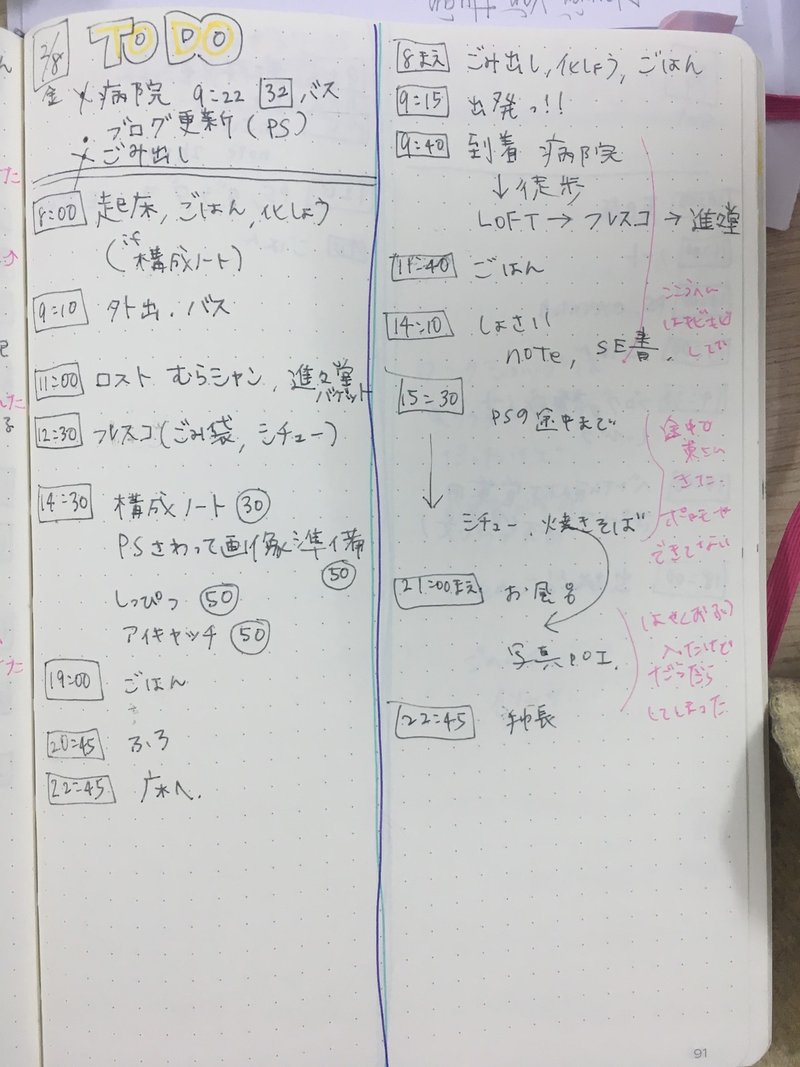 2/8
TO DO
金 × 病院 9:22 32 バス
・ ブログ更新(PS)
× ごみ出し
8:00 起床, ごはん, 化しょう
(if 構成ノート)
9:10 外出. バス
11:00 ロスト むらシャン, 進々堂
バゲット
12:30 フレスコ(ごみ袋, シチュー)
14:30 構成ノート 30
PSさわって画像準備
50
しっぴつ 50
アイキャッチ 50
19:00 ごはん
20:45 ふろ
22:45 床へ.
8まえ ごみ出し, 化しょう, ごはん
9:15 出発っ!!
9:40 到着 病院
↓徒歩
LOFT → フレスコ → 進々堂
11:40 ごはん
14:10 しょさい
note, SE書.
15:30
PSの途中まで
↓
シチュー. 焼きそば
21:00まえ お風呂
写真
22:45
こころへん
はきびきび
してた
途中で
きた
できてない
入ったけど
だらだら
してしまった
91